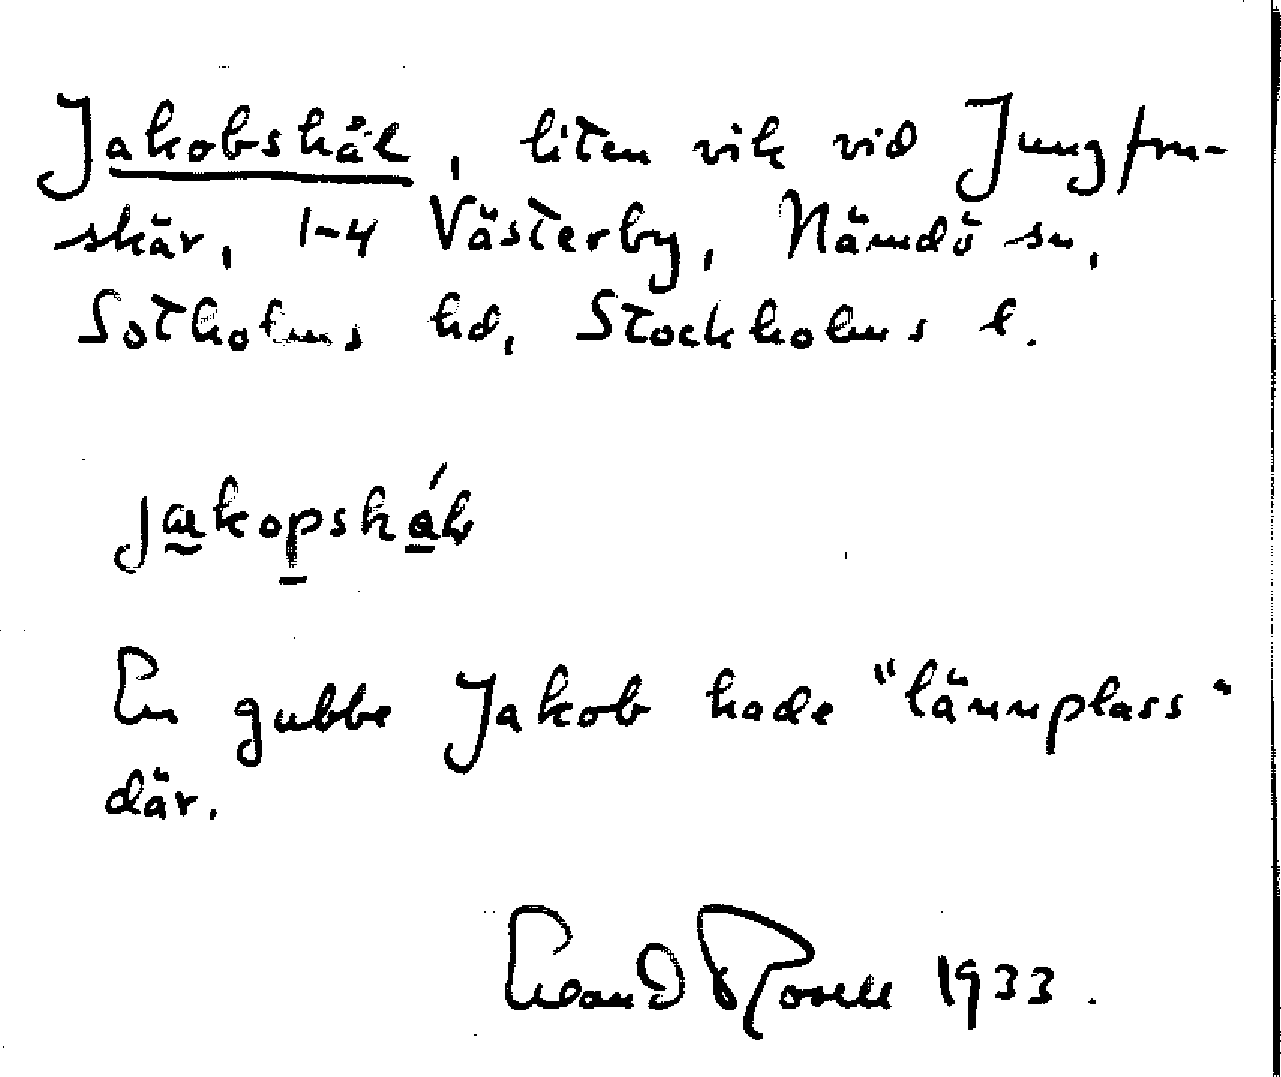 Jakobshål, liten vik vid Jungfru-
skär, 1-4 Västerby, Nämdö sn,
Sotholms hd, Stockholms l.
jakopshål
En gubbe Jakob hade "lännplass"
där.
1933.